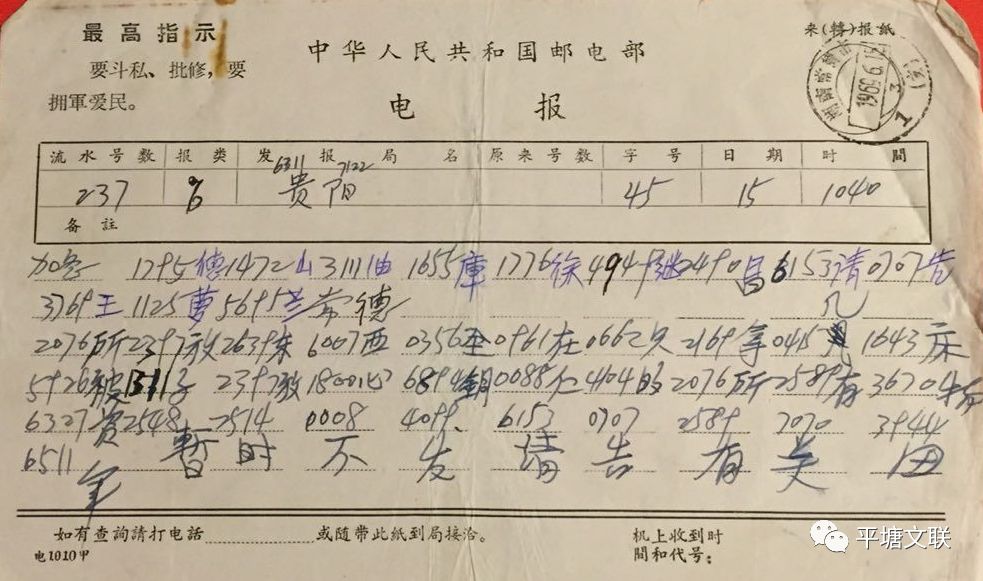 最高指示
要斗私、批修,要
拥軍爱民。
中华人民共和国邮电部
电报
来(轉)报紙
1969.6.15
流水号数 报类 发报局名 原来号数 字号 日期 时間
6311 7122
237 贵阳 45 15 1040
备註
加急 1795德1472山3111油 1655庫 1776徐4949继2490昌6153请0707告
3769王1125萝5695兰常德
2076所2397放2639来6007西0356全0961在0662只2169拿0415几1643床
5926被1311子2397放1800心6894钢0088仁4104的2076所2589有3670
6327资2548 2514 0008 4099 6153 0707 2589 7070 3944
6511 金 暫时不发请告有关
如有查詢請打电話 或随带此紙到局接洽。
电1010甲
机上收到时
間和代号:
平塘文联